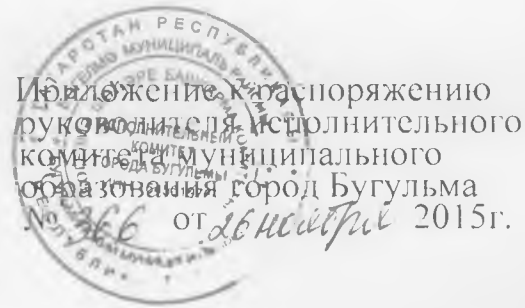 Приложение к распоряжению
руководителя исполнительного
комитета муниципального
образования город Бугульма
№ 366 от 26 ноября 2015г.